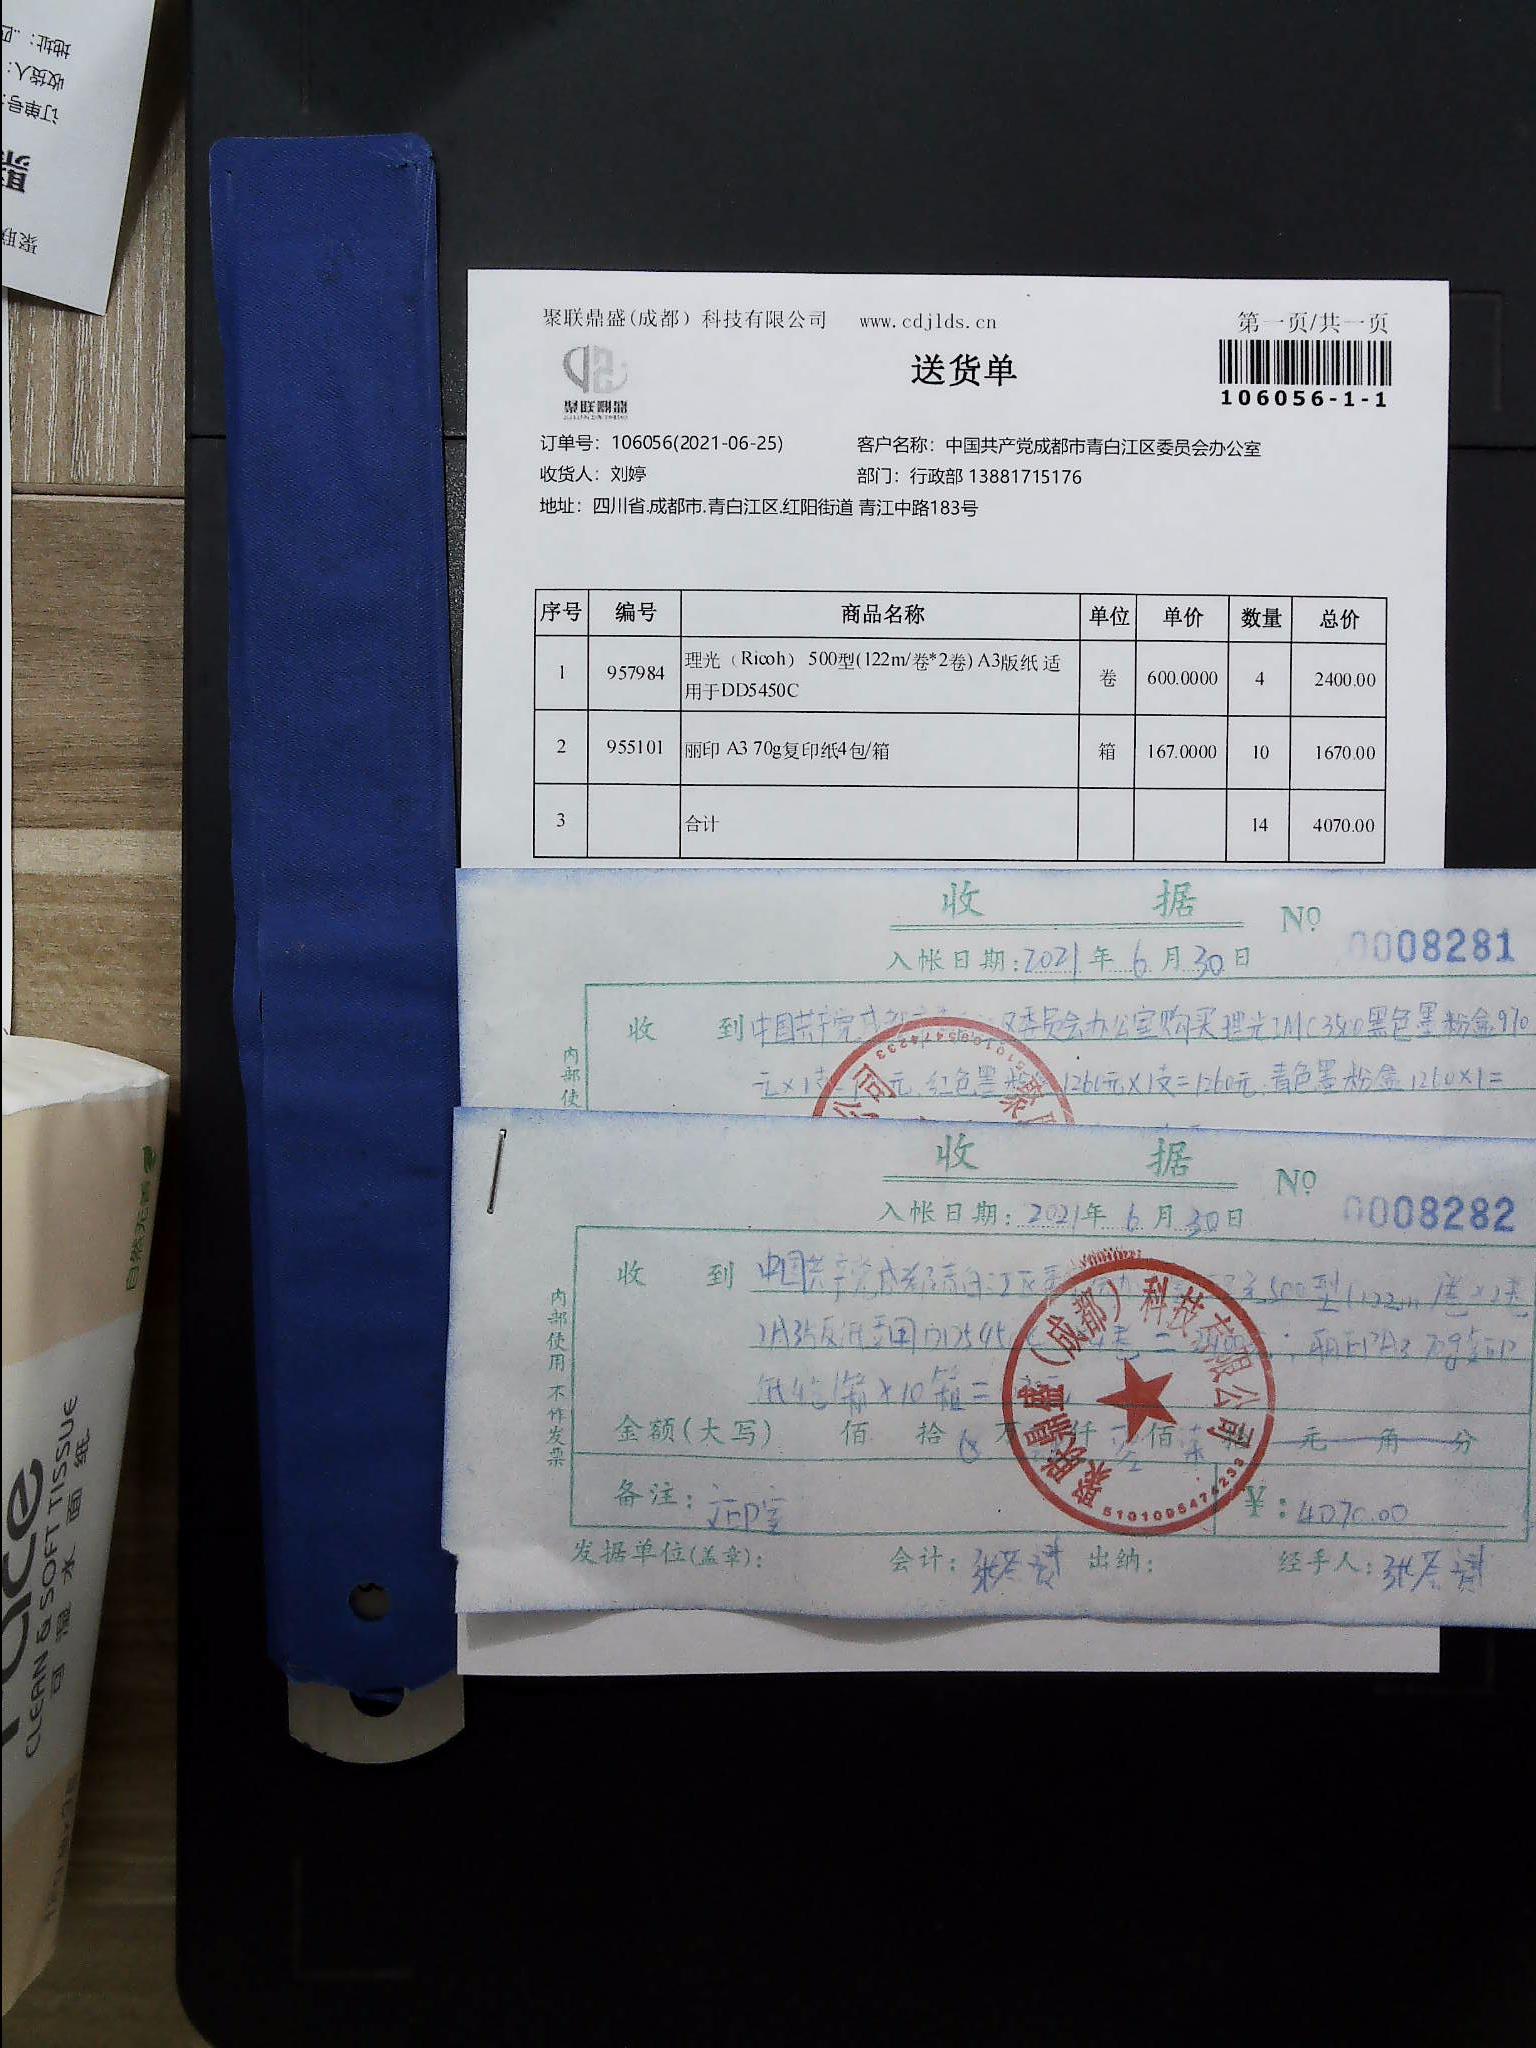 地址：
收货人：
订单号：
聚联
聚联鼎盛(成都）科技有限公司 www.cdjlds.cn
第一页/共一页
送货单
106056-1-1
订单号：106056(2021-06-25)
客户名称：中国共产党成都市青白江区委员会办公室
收货人：刘婷
部门：行政部 13881715176
地址：四川省.成都市.青白江区.红阳街道 青江中路183号
序号 编号 商品名称 单位 单价 数量 总价
1 957984 理光（Ricoh） 500型(122m/卷*2卷) A3版纸 适用于DD5450C 卷 600.0000 4 2400.00
2 955101 丽印 A3 70g复印纸4包/箱 箱 167.0000 10 1670.00
3 合计 14 4070.00
收据 № 0008281
入帐日期：2021年6月30日
收到中国共产党成都 区委员会办公室购买理光IMC3500黑色墨粉盒970
元×1支 元，红色墨粉 1260元×1支=1260元，青色墨粉盒1260×1=
内部使
收据 № 0008282
入帐日期：2021年6月30日
收到中国共产党成都 500型(122m/卷×2卷
)A3版纸适用DD545 卷=
纸4包/箱×10箱=
金额(大写) 佰 拾 万 仟零佰柒拾元角分
备注：文印室
¥：4070.00
发据单位(盖章)： 会计： 出纳： 经手人：
内部使用 不作发票
聚联鼎盛（成都）科技有限公司
5101095474233
CLEAN & SOFT TISSUE
可湿水面纸